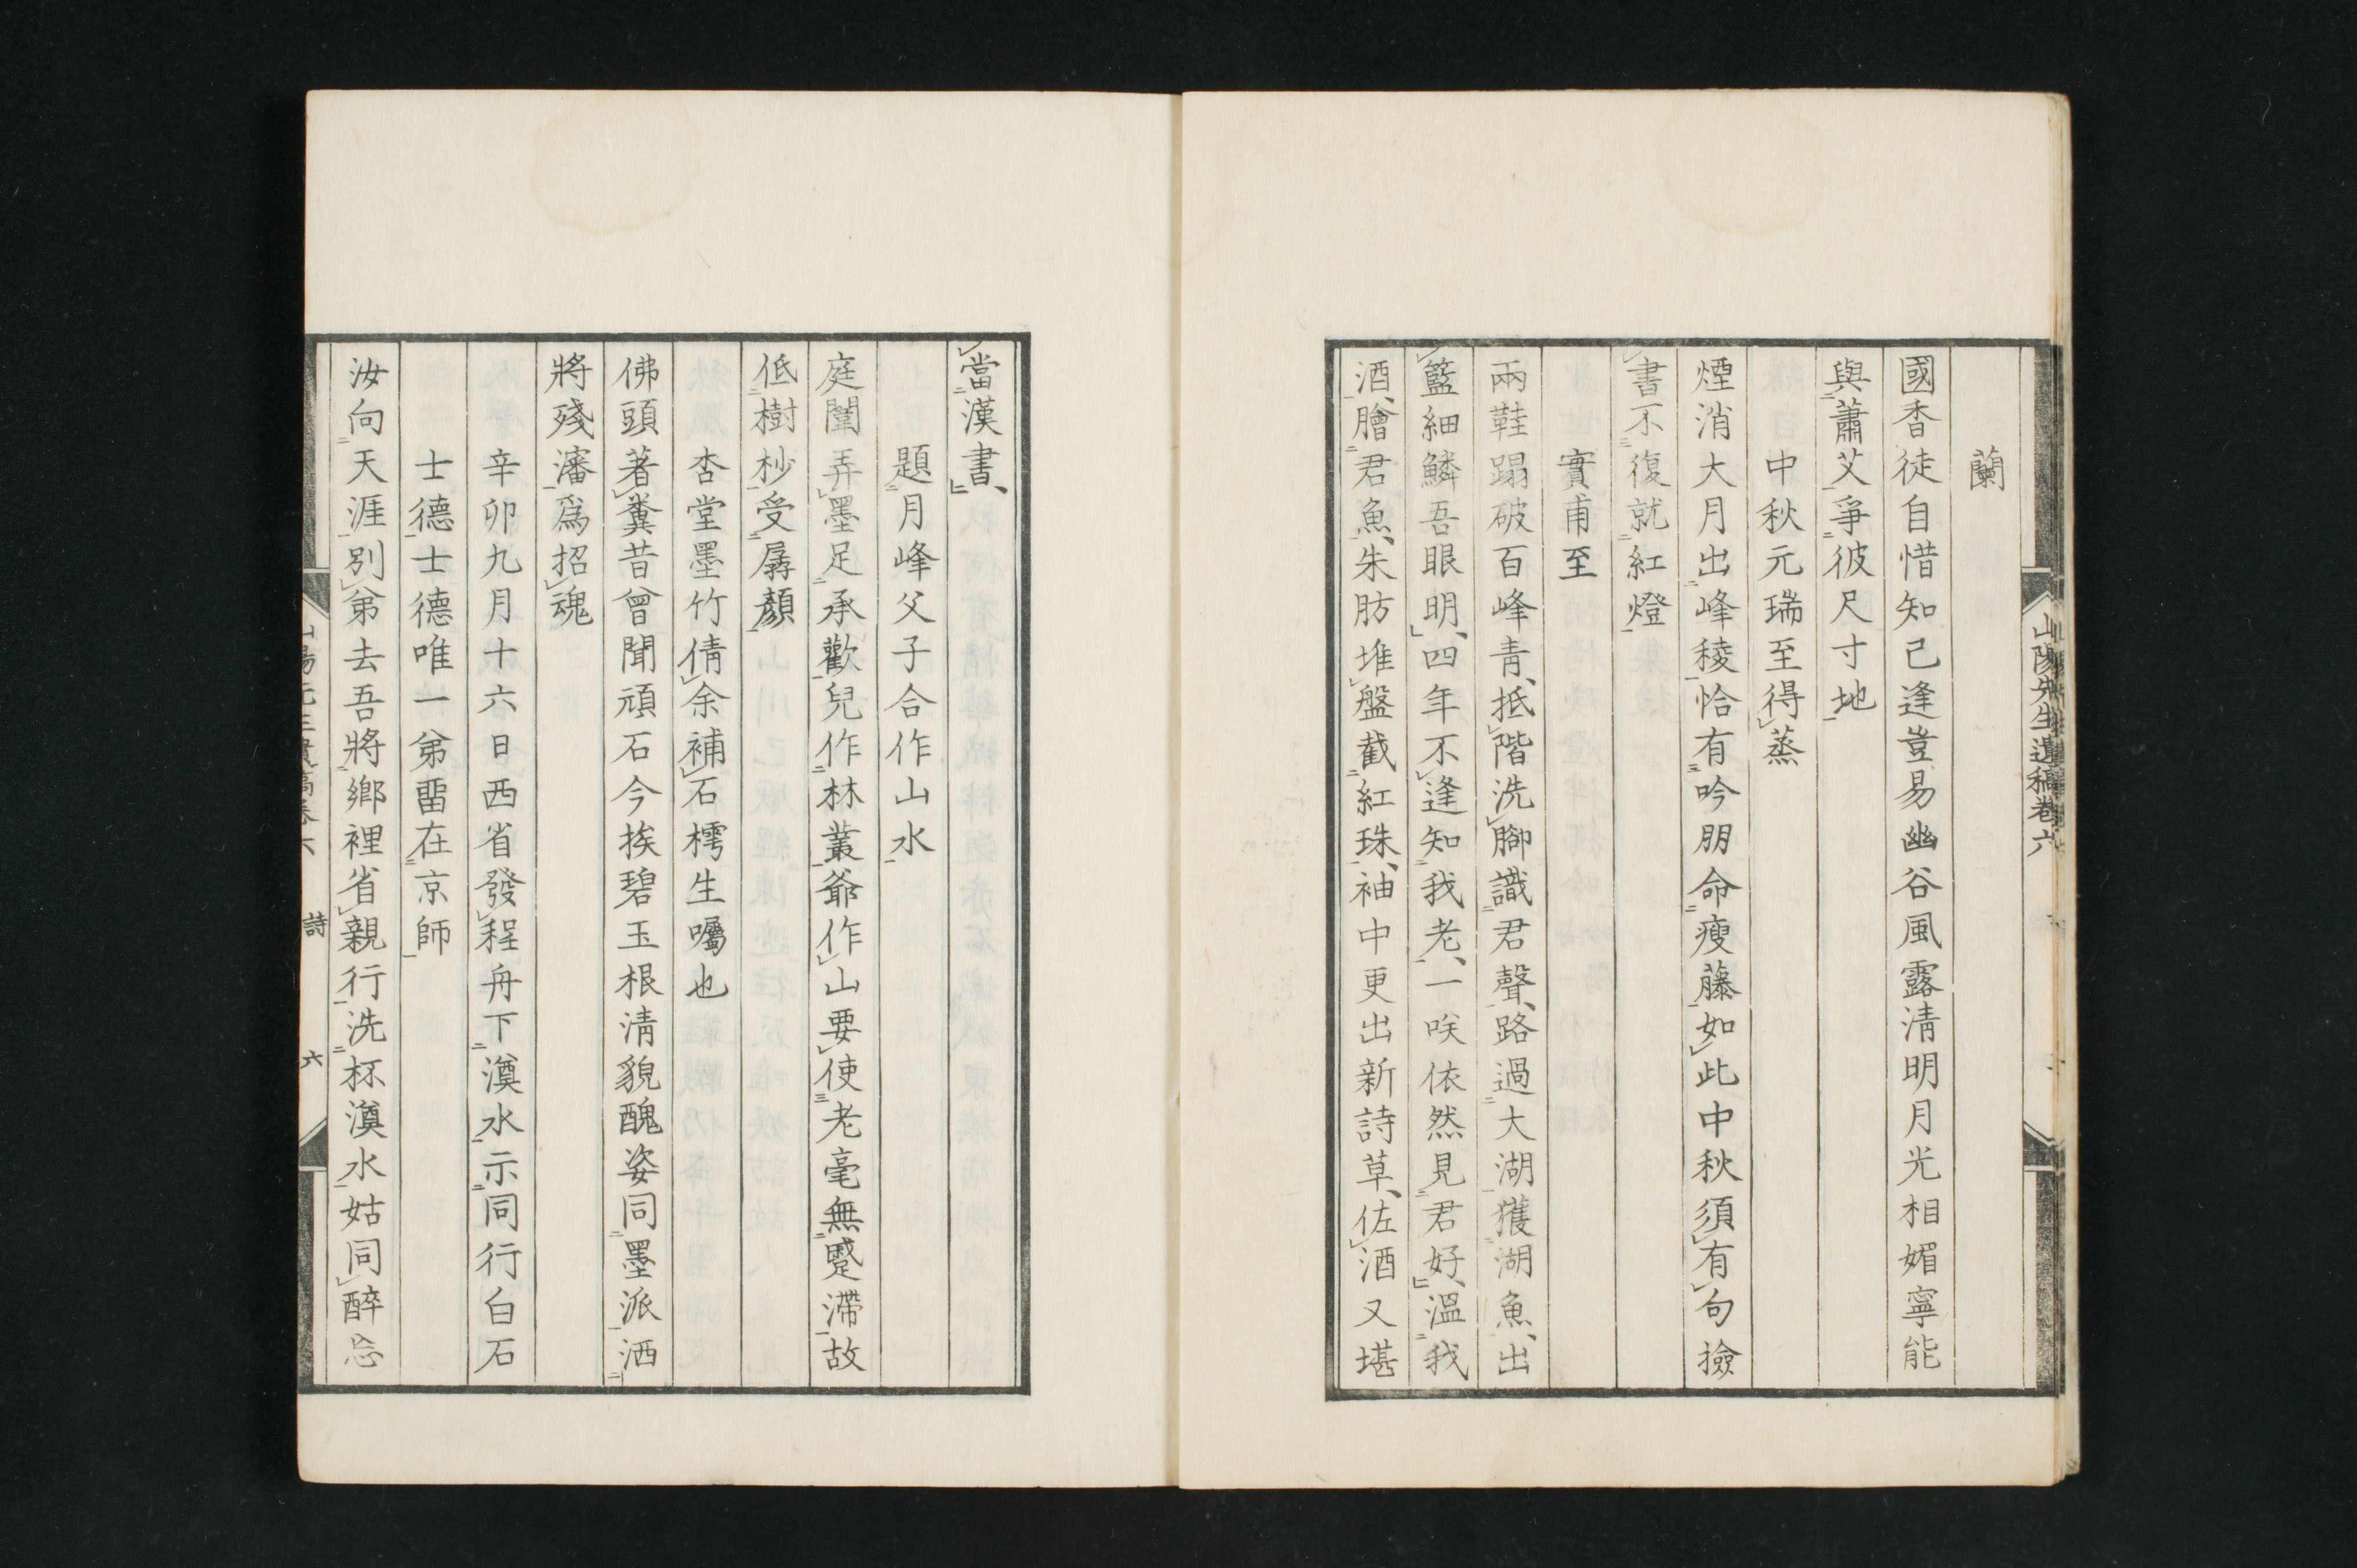 山陽先生遺稿卷六
蘭
國香徒自惜知己逢豈易幽谷風露清明月光相媚寧能
與蕭艾爭彼尺寸地
中秋元瑞至得蒸
煙消大月出峰稜恰有吟朋命瘦藤如此中秋須有句撿
書不復就紅燈
實甫至
兩鞋蹋破百峰青抵階洗腳識君聲路過大湖獲湖魚出
籃細鱗吾眼明四年不逢知我老一咲依然見君好溫我
酒膾君魚朱肪堆盤截紅珠袖中更出新詩草佐酒又堪
當漢書
題月峰父子合作山水
庭闈弄墨足承歡兒作林叢爺作山要使老毫無蹙滯故
低樹杪受孱顏
杏堂墨竹倩余補石樗生囑也
佛頭著糞昔曾聞頑石今挨碧玉根清貌醜姿同墨派洒
將殘瀋爲招魂
辛卯九月十六日西省發程舟下澱水示同行白石
士德士德唯一弟畱在京師
汝向天涯別弟去吾將鄉裡省親行洗杯澱水姑同醉忍
詩
六